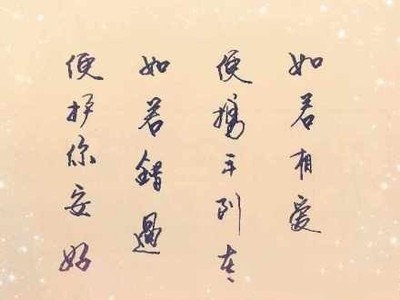 如若相爱
便携手到老
如若錯過
便护你安好